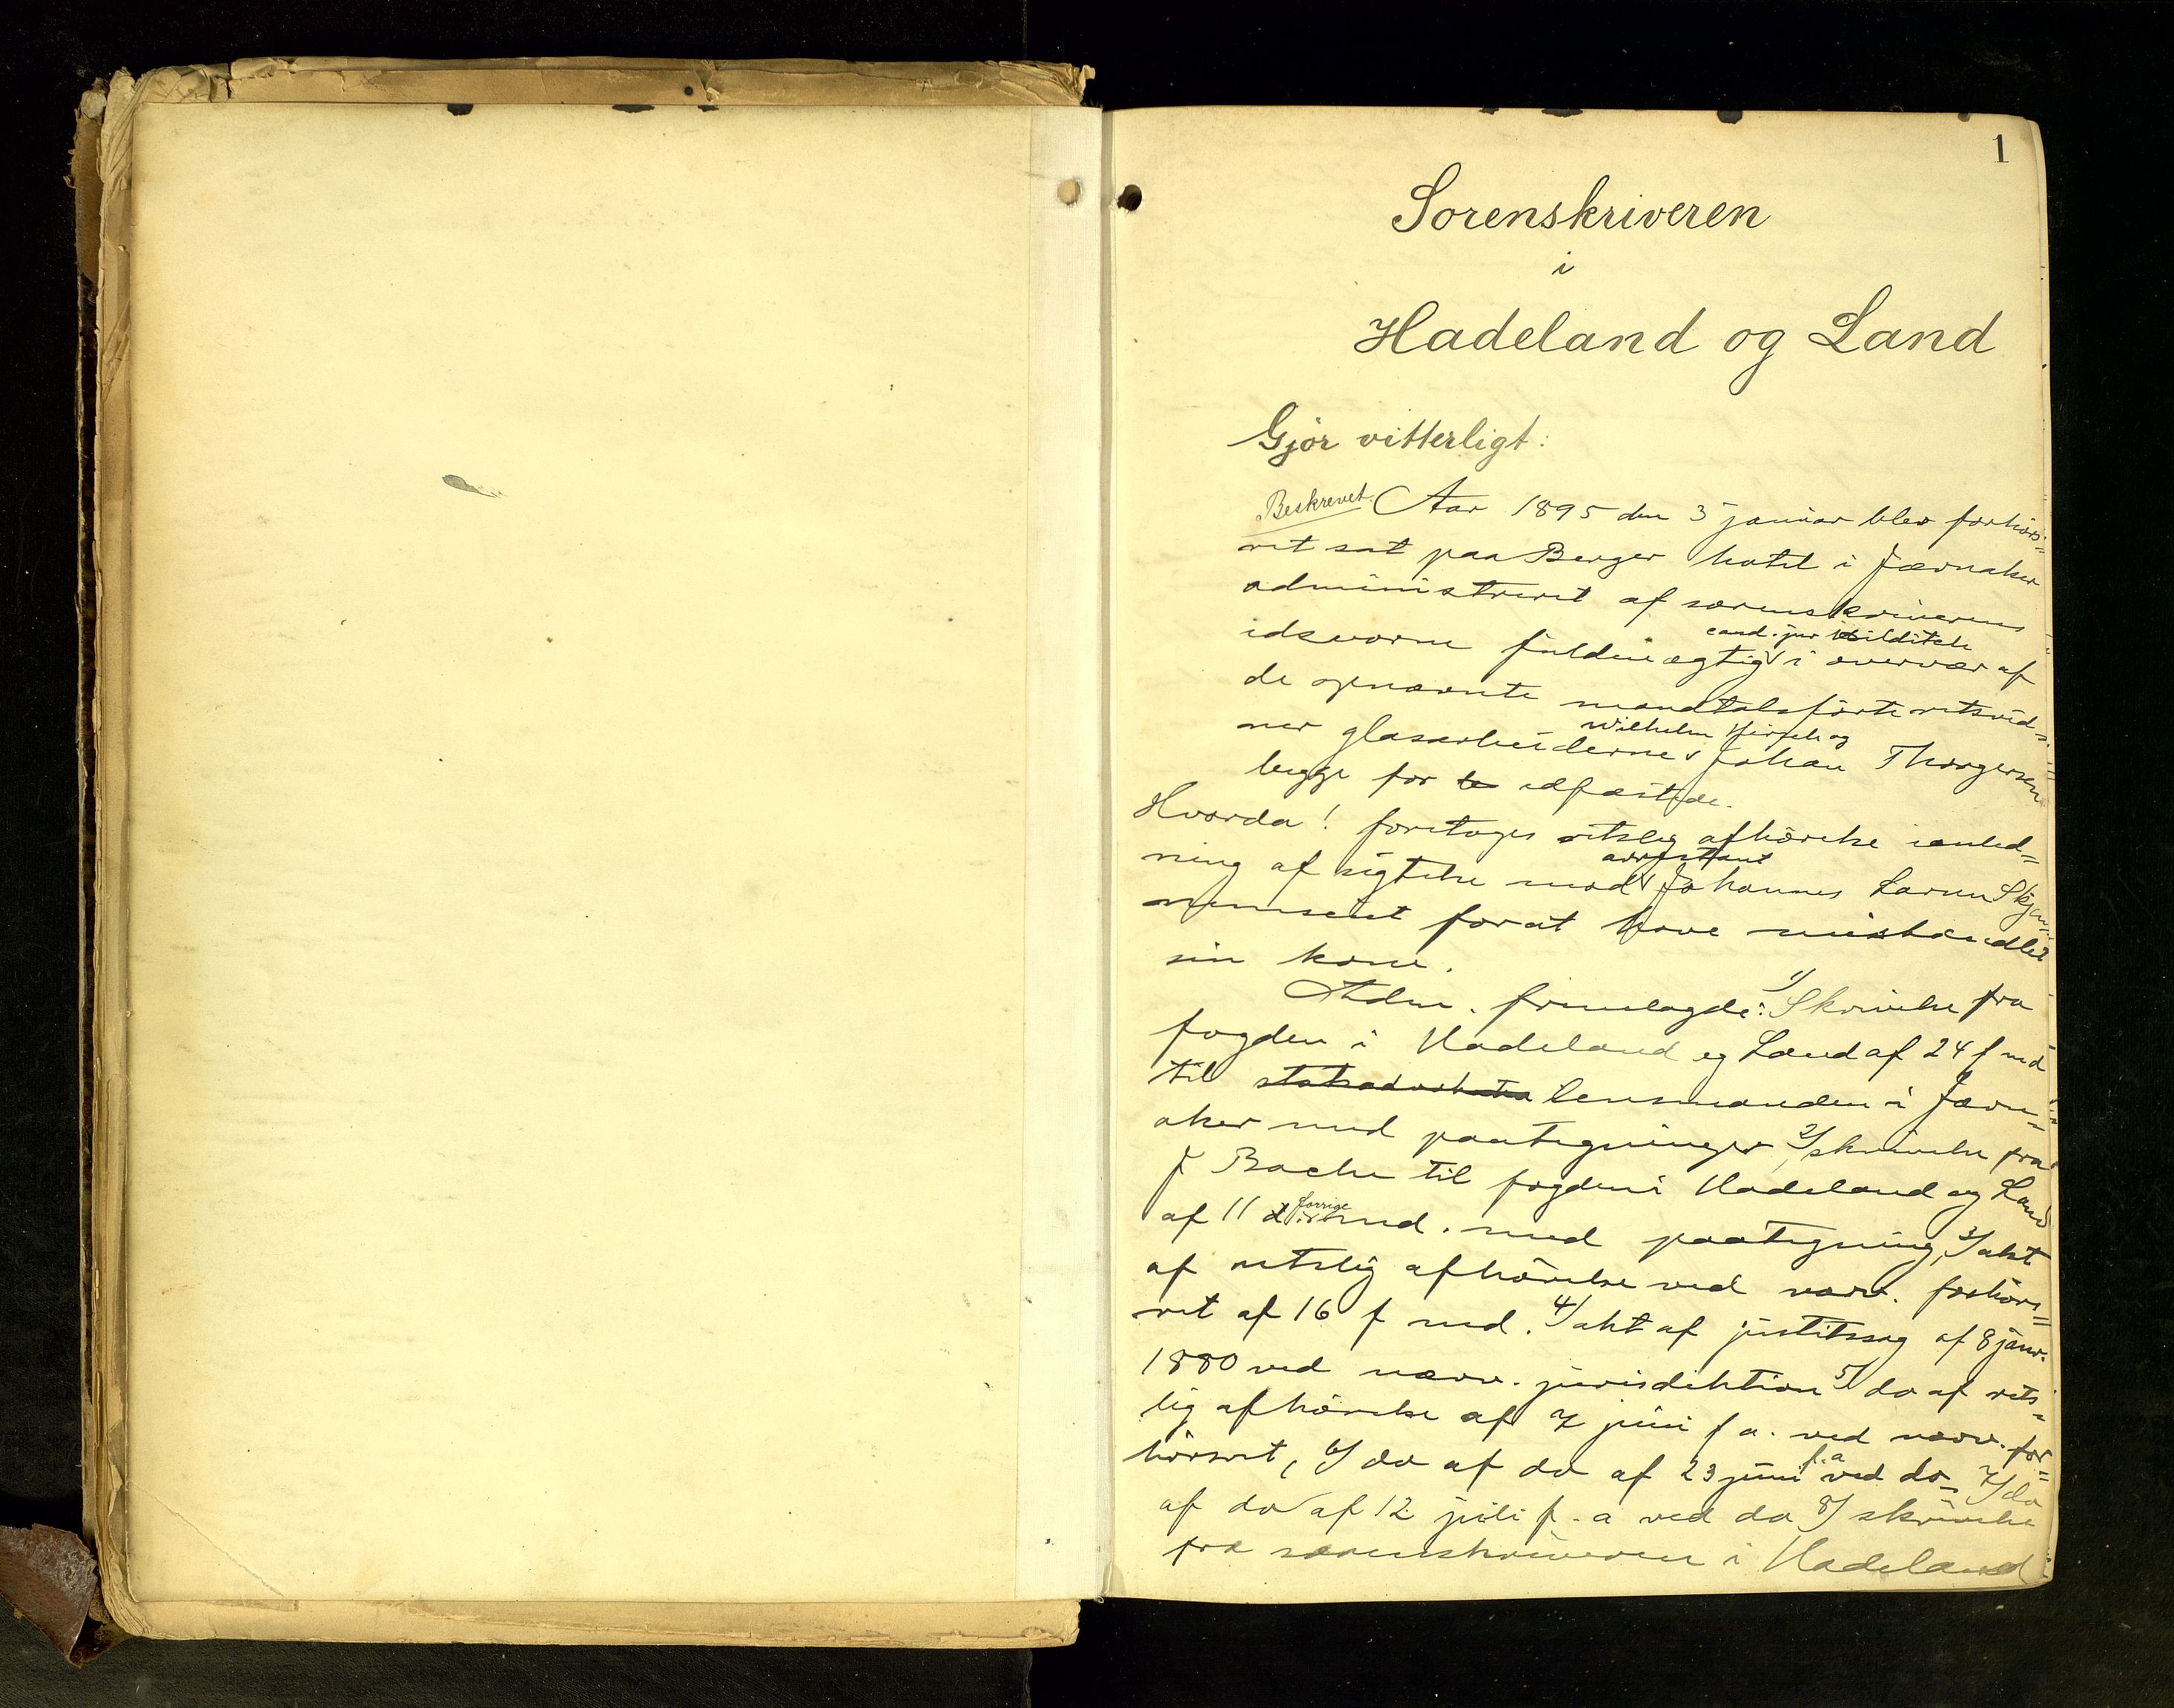 1
Sorenskriveren
i
Hadeland og Land
Gjør vitterligt:
Beskrevet. Aar 1895 den 3 januar blev forhörs=
ret sat paa Berger hotel i Jævnaker
administreret af sorenskriverens
cand. jur Hilditch
edsvorne fuldmægtig i overvær af
de opnævnte mandtalsførte retsvid-
Wilhelm Hirsch og
ner glasarbeiderne Johan Thorgersen
begge for edfæstede.
Hvorda! foretoges retslig afhörelse ianled=
arrestant
ning af sigtelse mod Johannes Larsen Skjæn-
nemseiet forat have mishandlet
sin kone.
Adm. fremlagde: 1/ Skrivelse fra
fogden i Hadeland og Land af 24 f md
til statsadvokaten lensmanden i Jævn=
aker med paategninger, 2/ skrivelse fra
J Bache til fogden i Hadeland og Land
forrige
af 11 md. med paategning, 3/ akt
af retslig afhörelse ved nærv. forhörs=
ret af 16 f md. 4/ akt af justitssag af 8 janr.
1880 ved nærv. jurisdiktion 5/ do af rets-
lig afhörelse af 7 juni f a. ved nærv. for=
hörsret, 6/ do af do af 23 juni f. a ved do, 7/ do
af do af 12 juli f. a ved do 8/ skrivelse
fra sorenskriveren i Hadeland